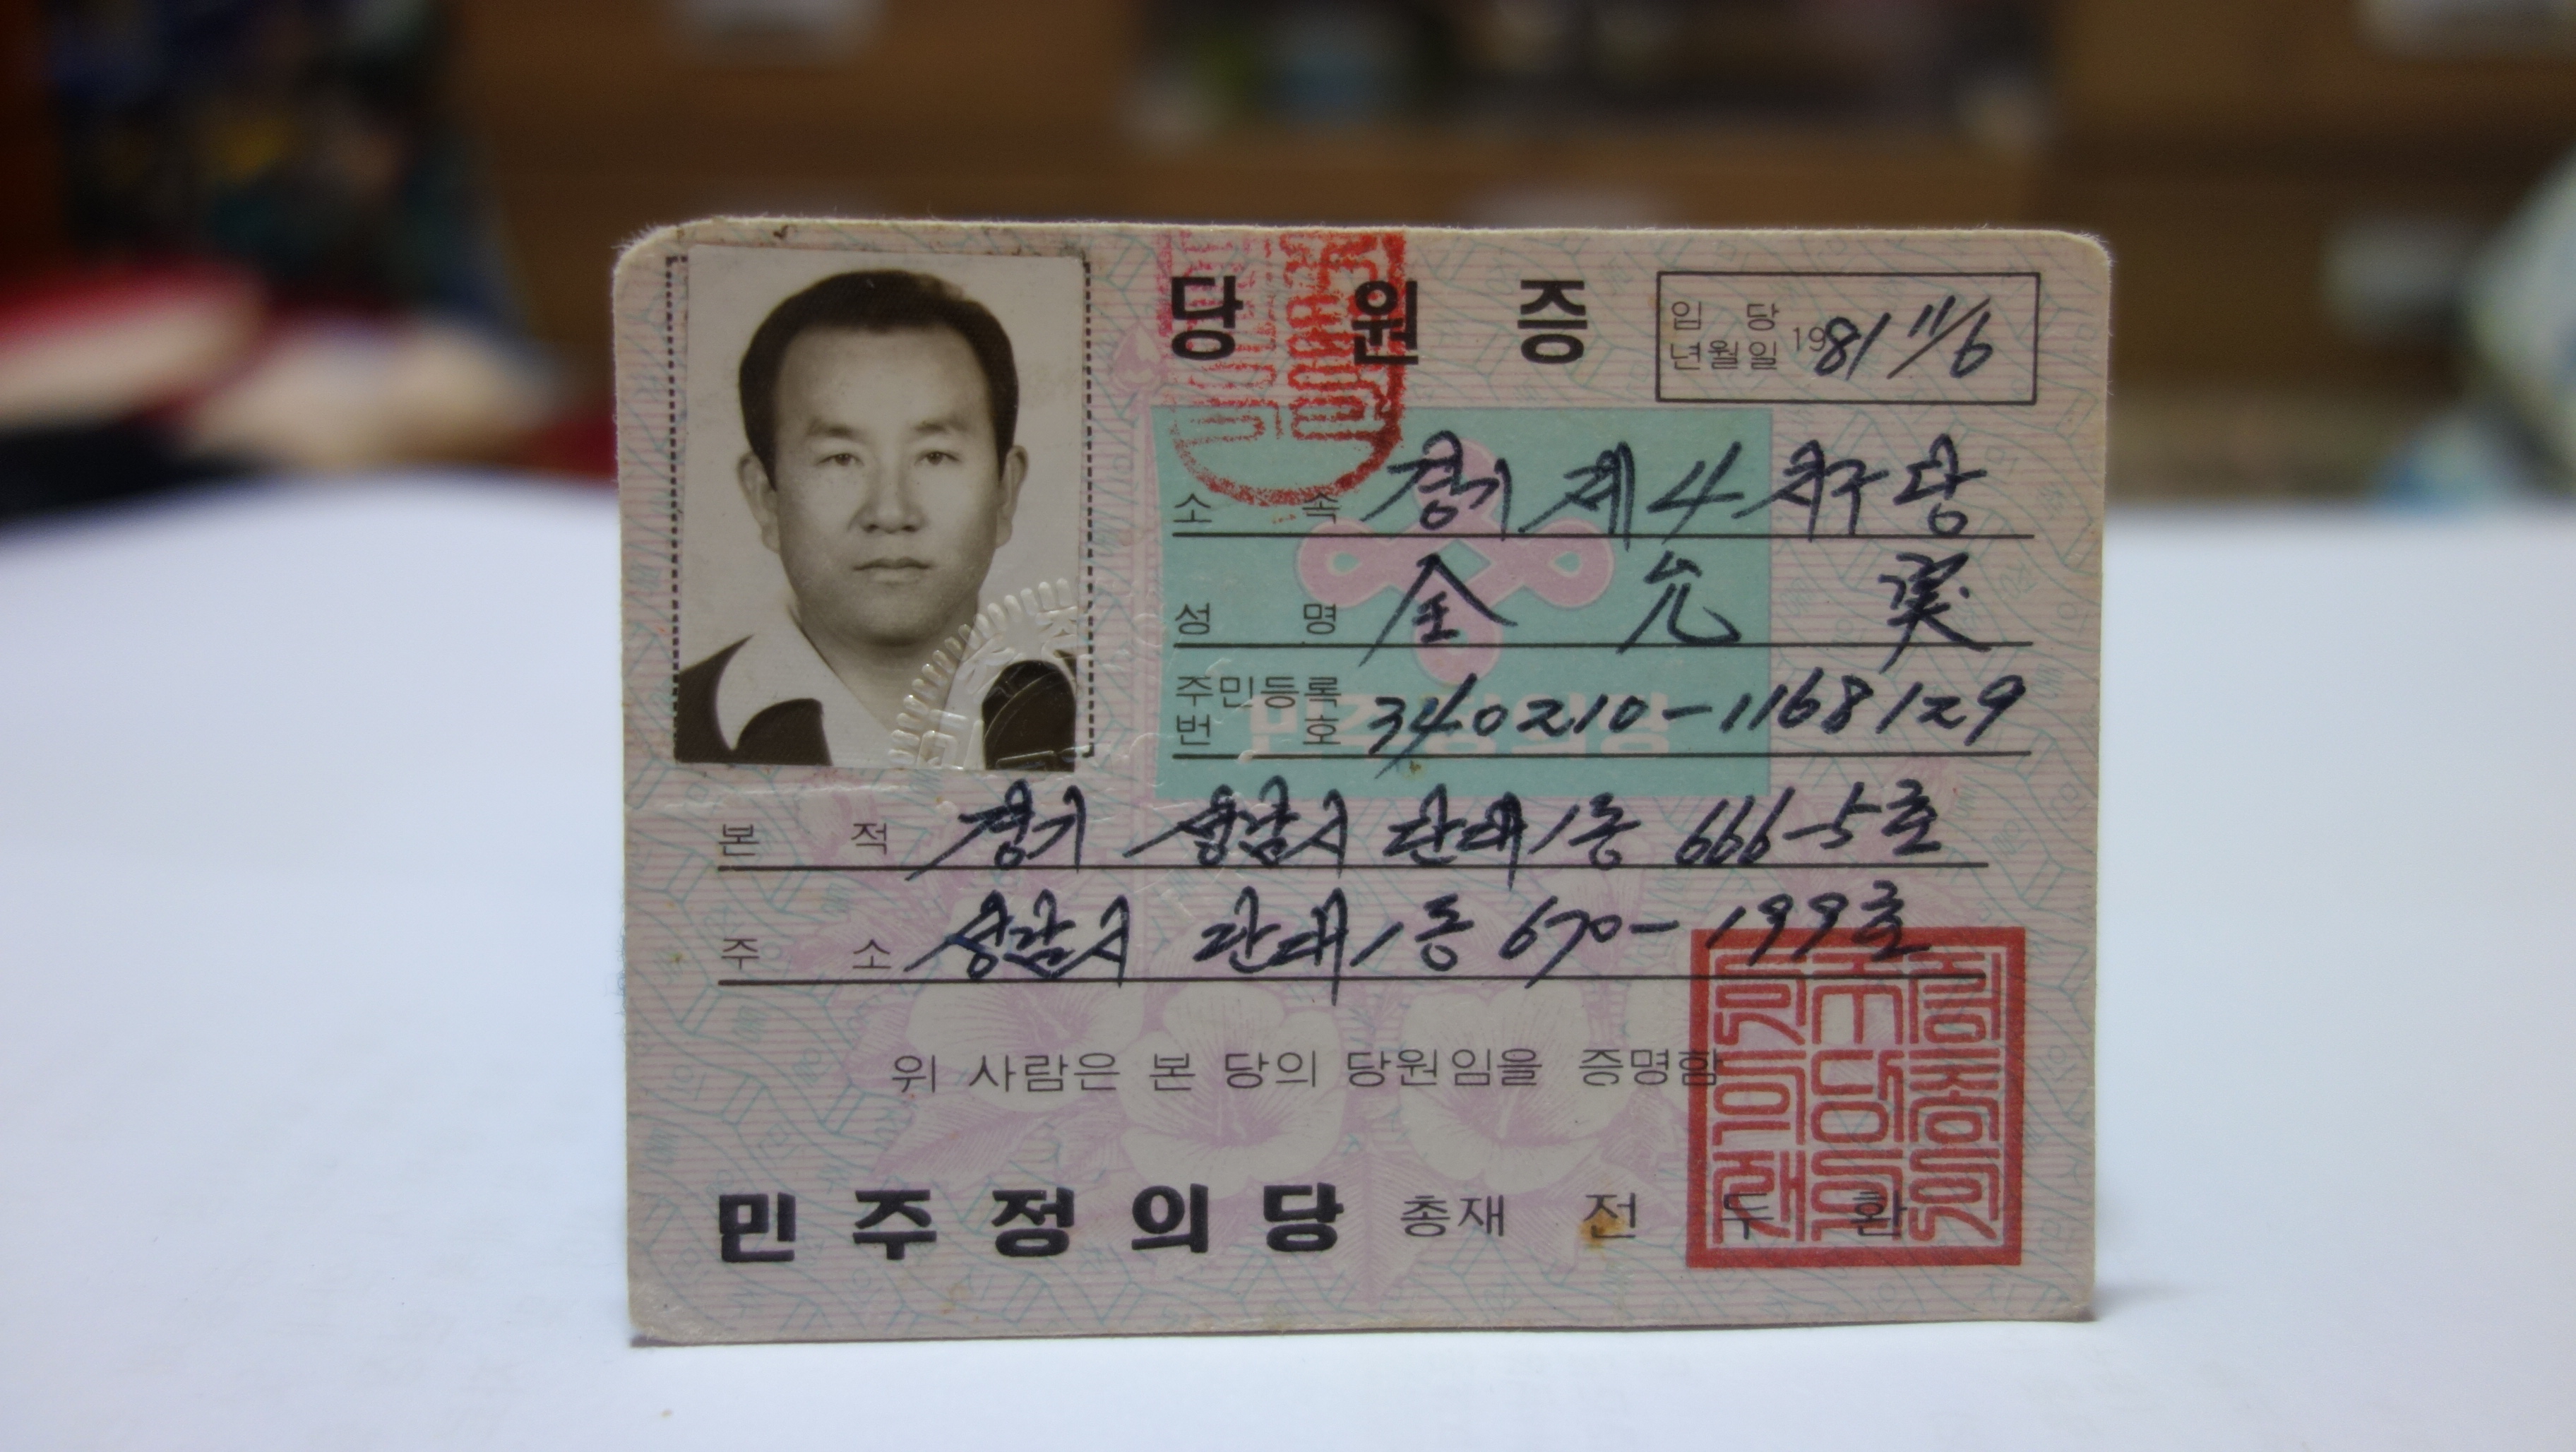 당 원 증
입 당
년월일 1981 11/6
소 속 경기 제4지구당
성 명 全 允
주민등록
번 호 340210-1168129
본 적 경기 성남시 단대1동 666-5호
주 소 성남시 단대1동 670-199호
위 사람은 본 당의 당원임을 증명함
민주정의당 총재 전 두 환